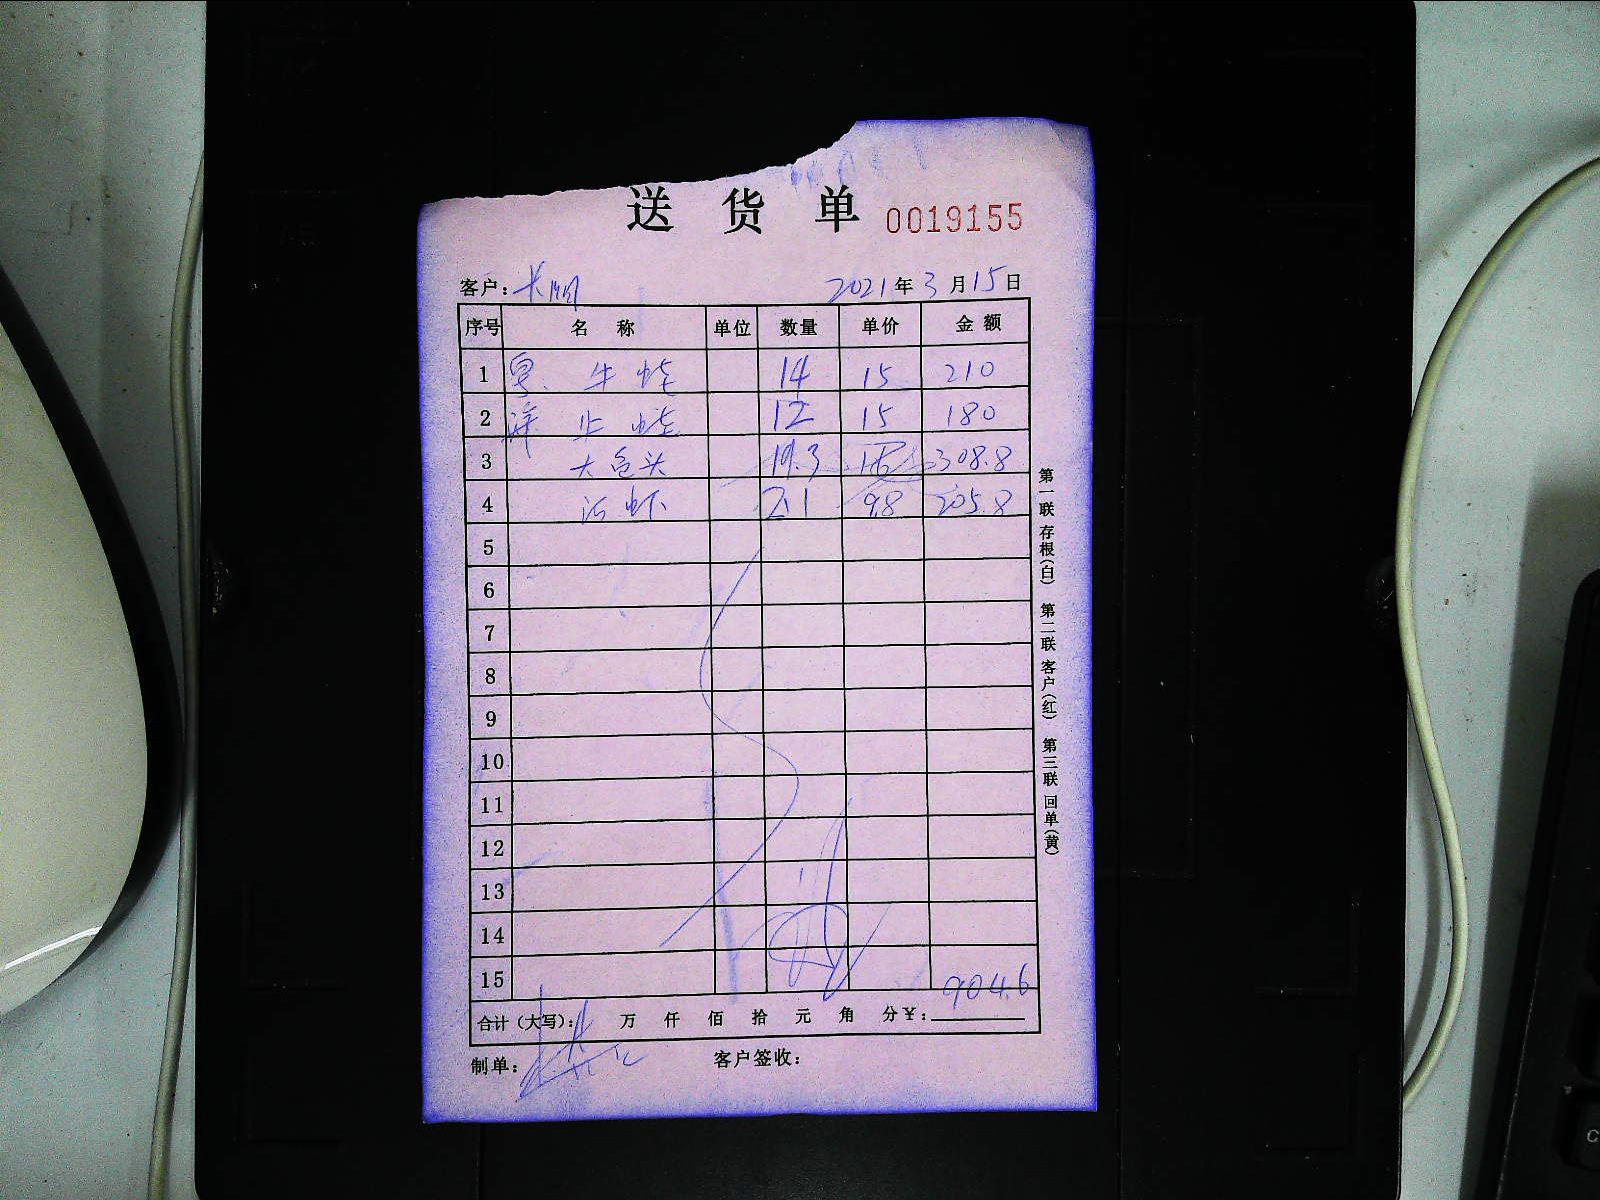 送 货 单 0019155
客户: 2021年3月15日
序号 名 称 单位 数量 单价 金额
1 牛蛙 14 15 210
2 牛蛙 12 15 180
3 大鱼头 19.3 308.8
4 河虾 2.1 98 205.8
5
6
7
8
9
10
11
12
13
14
15
合计(大写): 万 仟 佰 拾 元 角 分¥: 904.6
制单: 客户签收:
第一联 存根(白) 第二联 客户(红) 第三联 回单(黄)